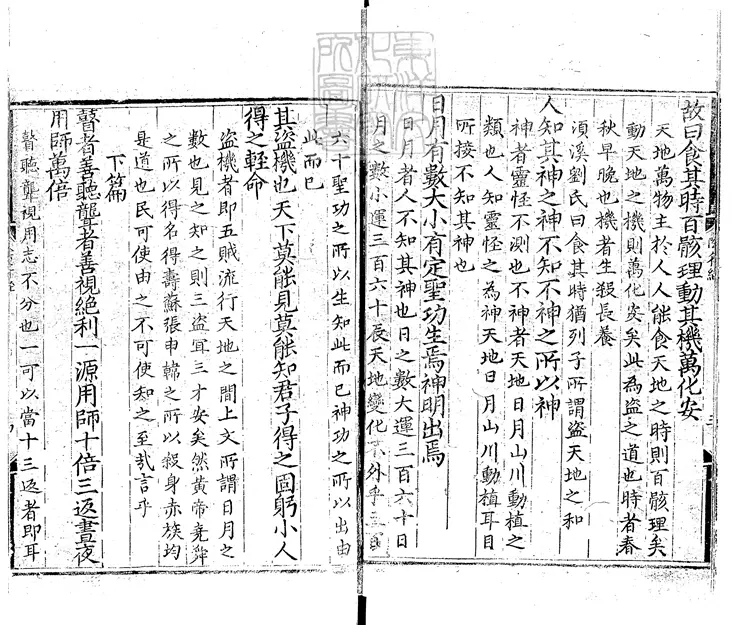 故曰食其時百骸理動其機萬化安
天地萬物主於人人能食天地之時則百骸理矣
動天地之機則萬化安矣此為盜之道也時者春
秋早晚也機者生殺長養
湏溪劉氏曰食其時猶列子所謂盜天地之和
人知其神之神不知不神之所以神
神者靈怪不測也不神者天地日月山川動植之
類也人知靈怪之為神天地日月山川動植耳目
所接不知其神也
日月有數大小有定聖功生焉神明出焉
日月者人不知其神也日之數大運三百六十日
月之數小運三百六十辰天地變化不外乎三百
六十聖功之所以生知此而已神功之所以出由
此而已
其盜機也天下莫能見莫能知君子得之固躬小人
得之輕命
盜機者即五賊流行天地之間上文所謂日月之
數也見之知之則三盜宜三才安矣然黃帝堯舜
之所以得名得壽蘇張申韓之所以殺身赤族均
是道也民可使由之不可使知之至哉言乎
下篇
瞽者善聽聾者善視絕利一源用師十倍三返晝夜
用師萬倍
瞽聽聾視用志不分也一可以當十三返者即耳